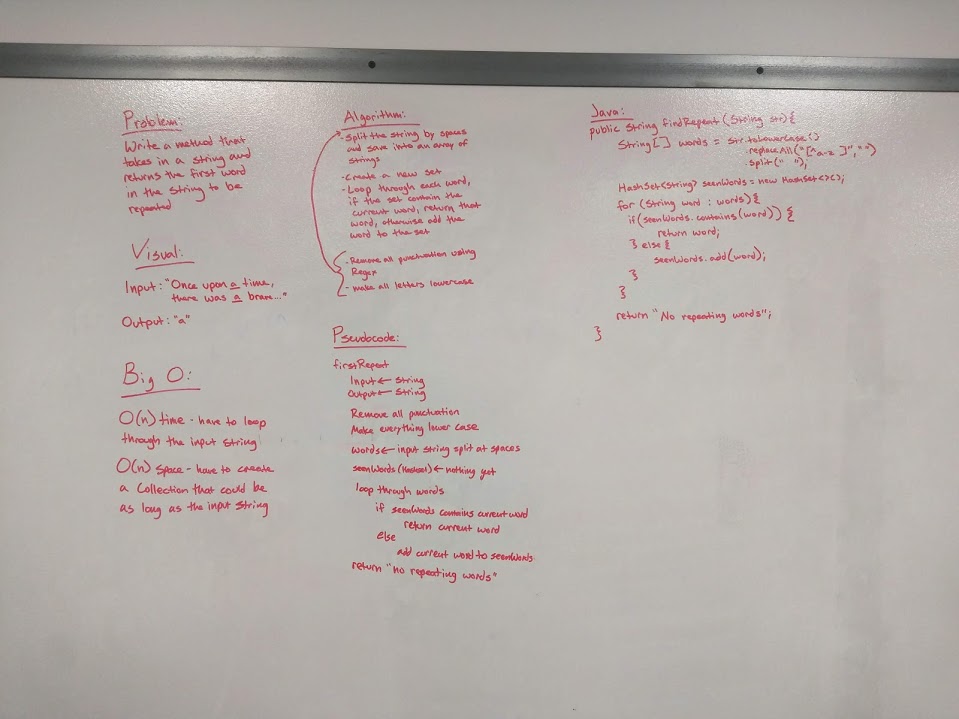 Problem:
Write a method that
takes in a string and
returns the first word
in the string to be
repeated
Visual:
Input: "Once upon a time,
there was a brave..."
Output: "a"
Big O:
O(n) time - have to loop
through the input string
O(n) space - have to create
a collection that could be
as long as the input string
Algorithm:
- Split the string by spaces
and save into an array of
strings
- Create a new set
- Loop through each word,
if the set contain the
current word, return that
word, otherwise add the
word to the set
- Remove all punctuation using
Regex
- make all letters lowercase
Pseudocode:
firstRepeat
Input ← string
Output ← string
Remove all punctuation
Make everything lower case
words ← input string split at spaces
seenWords (Hashset) ← nothing yet
loop through words
if seenWords contains current word
return current word
else
add current word to seenWords
return "no repeating words"
Java:
public String findRepeat (String str) {
String[] words = str.toLowerCase()
.replaceAll("[^a-z ]", "")
.split(" ");
HashSet<String> seenWords = new HashSet<>();
for (String word : words) {
if (seenWords.contains(word)) {
return word;
} else {
seenWords.add(word);
}
}
return "No repeating words";
}